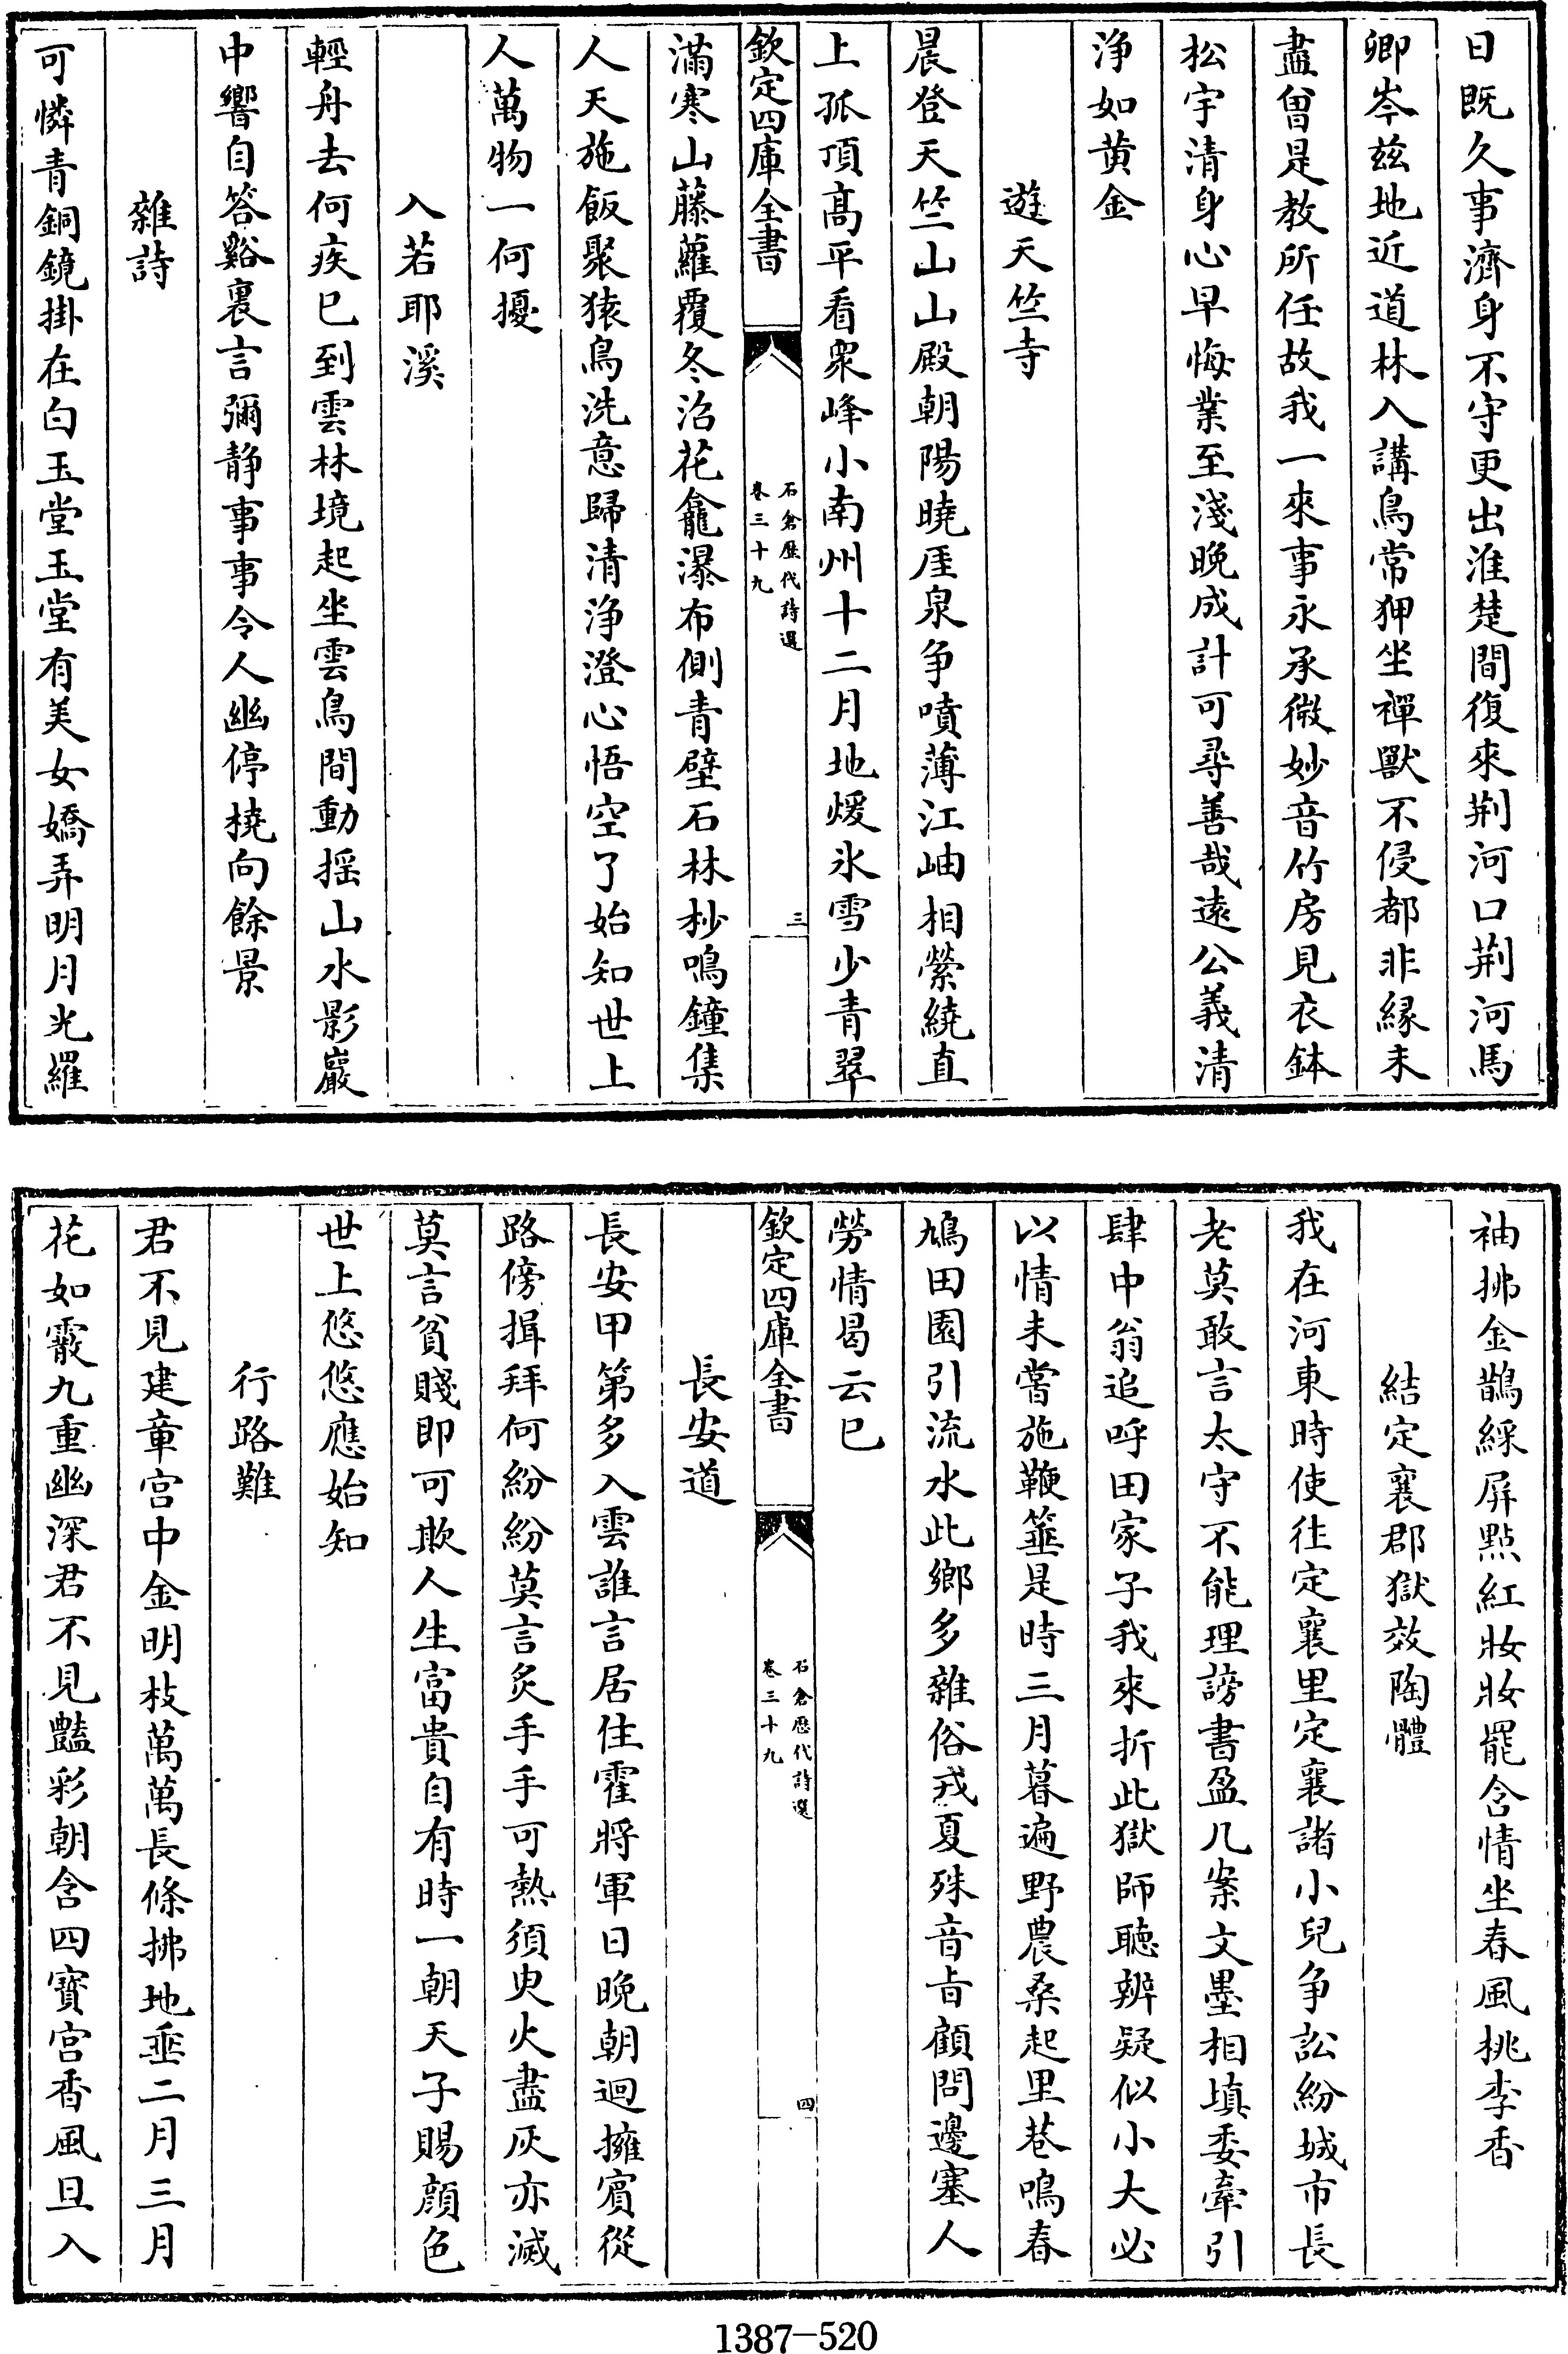 日既久事濟身不守更出淮楚間復來荆河口荆河馬
卿岑兹地近道林入講鳥常狎坐禪獸不侵都非縁未
盡曾是教所任故我一來事永承微妙音竹房見衣鉢
松宇清身心早悔業至淺晚成計可尋善哉逺公義清
浄如黄金
遊天竺寺
晨登天竺山山殿朝陽曉厓泉争噴薄江岫相縈繞直
上孤頂髙平看衆峰小南州十二月地煖氷雪少青翠
欽定四庫全書
石倉歴代詩選
卷三十九
三
滿寒山藤蘿覆冬沼花龕瀑布側青壁石林杪鳴鐘集
人天施飯聚猿鳥洗意歸清浄澄心悟空了始知世上
人萬物一何擾
入若耶溪
輕舟去何疾已到雲林境起坐雲鳥間動揺山水影巖
中響自答谿裏言彌静事事令人幽停橈向餘景
雜詩
可憐青銅鏡掛在白玉堂玉堂有美女嬌弄明月光羅
袖拂金鵲綵屏㸃紅妝妝罷含情坐春風桃李香
結定襄郡獄效陶體
我在河東時使往定襄里定襄諸小兒争訟紛城市長
老莫敢言太守不能理謗書盈几案文墨相填委牽引
肆中翁追呼田家子我來折此獄師聽辨疑似小大必
以情未嘗施鞭箠是時三月暮遍野農桑起里巷鳴春
鳩田園引流水此鄉多雜俗戎夏殊音㫖顧問邊塞人
勞情曷云已
欽定四庫全書
石倉歴代詩選
卷三十九
四
長安道
長安甲第多入雲誰言居住霍將軍日晚朝迴擁賓從
路傍揖拜何紛紛莫言炙手手可熱須臾火盡灰亦滅
莫言貧賤即可欺人生富貴自有時一朝天子賜顔色
世上悠悠應始知
行路難
君不見建章宫中金明枝萬萬長條拂地垂二月三月
花如霰九重幽深君不見豔彩朝含四寶宫香風旦入
1387-520